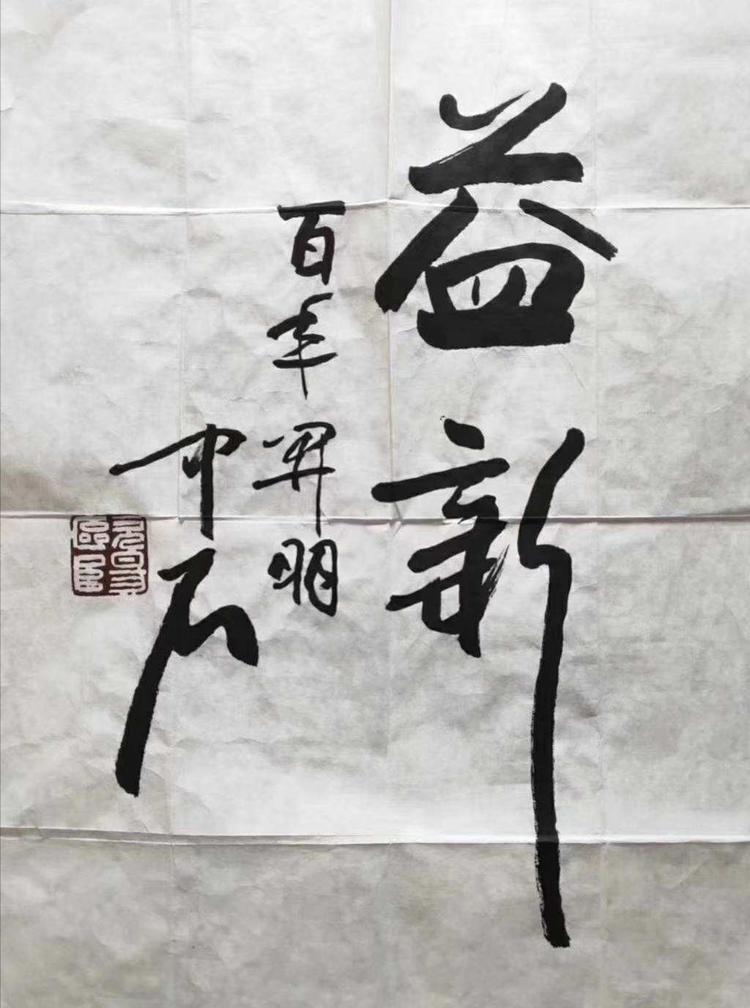 益新
百年开明
中石